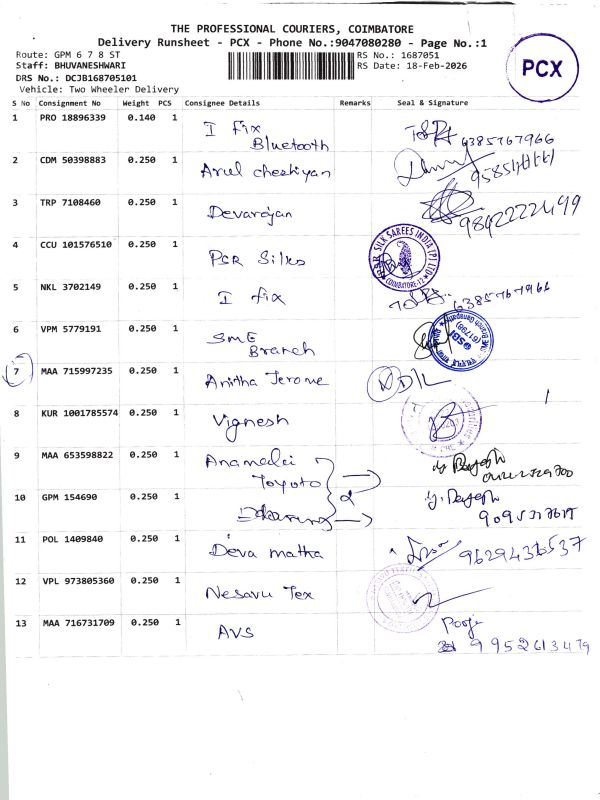 THE PROFESSIONAL COURIERS, COIMBATORE
Delivery Runsheet - PCX - Phone No.:9047080280 - Page No.:1
Route: GPM 6 7 8 ST
Staff: BHUVANESHWARI
DRS No.: DCJB168705101
Vehicle: Two Wheeler Delivery
RS No.: 1687051
RS Date: 18-Feb-2026
PCX
S No Consignment No Weight PCS Consignee Details Remarks Seal & Signature
1 PRO 18896339 0.140 1 I fix Bluetooth 6385767966
2 CDM 50398883 0.250 1 Arul chezhiyan
3 TRP 7108460 0.250 1 Devarajan
4 CCU 101576510 0.250 1 PSR Silks SILK SAREES INDIA (P) LTD COIMBATORE-12
5 NKL 3702149 0.250 1 I fix 6385767966
6 VPM 5779191 0.250 1 SME Branch SBI
7 MAA 715997235 0.250 1 Anitha Jerome ND/L
8 KUR 1001785574 0.250 1 Vignesh
9 MAA 653598822 0.250 1 Anamalai Toyoto
10 GPM 154690 0.250 1
11 POL 1409840 0.250 1 Deva matha
12 VPL 973805360 0.250 1 Nesavu Tex
13 MAA 716731709 0.250 1 AVS Pooja 9952613479